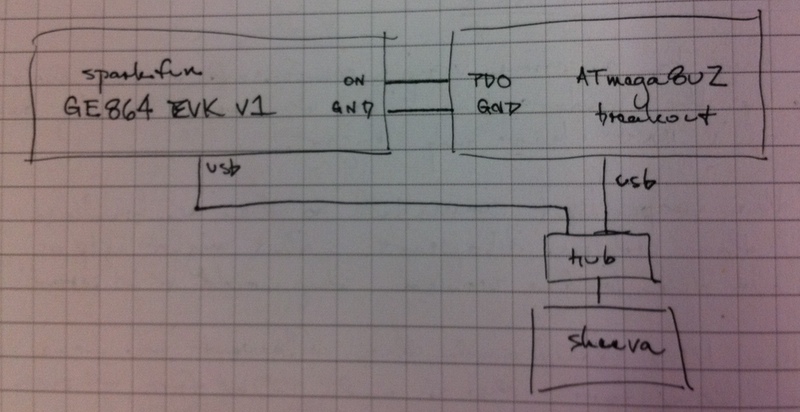 sparkfun
GE864 EVK V1
ON
GND
PD0
GND
ATmega8U2
breakout
usb
usb
hub
sheeva